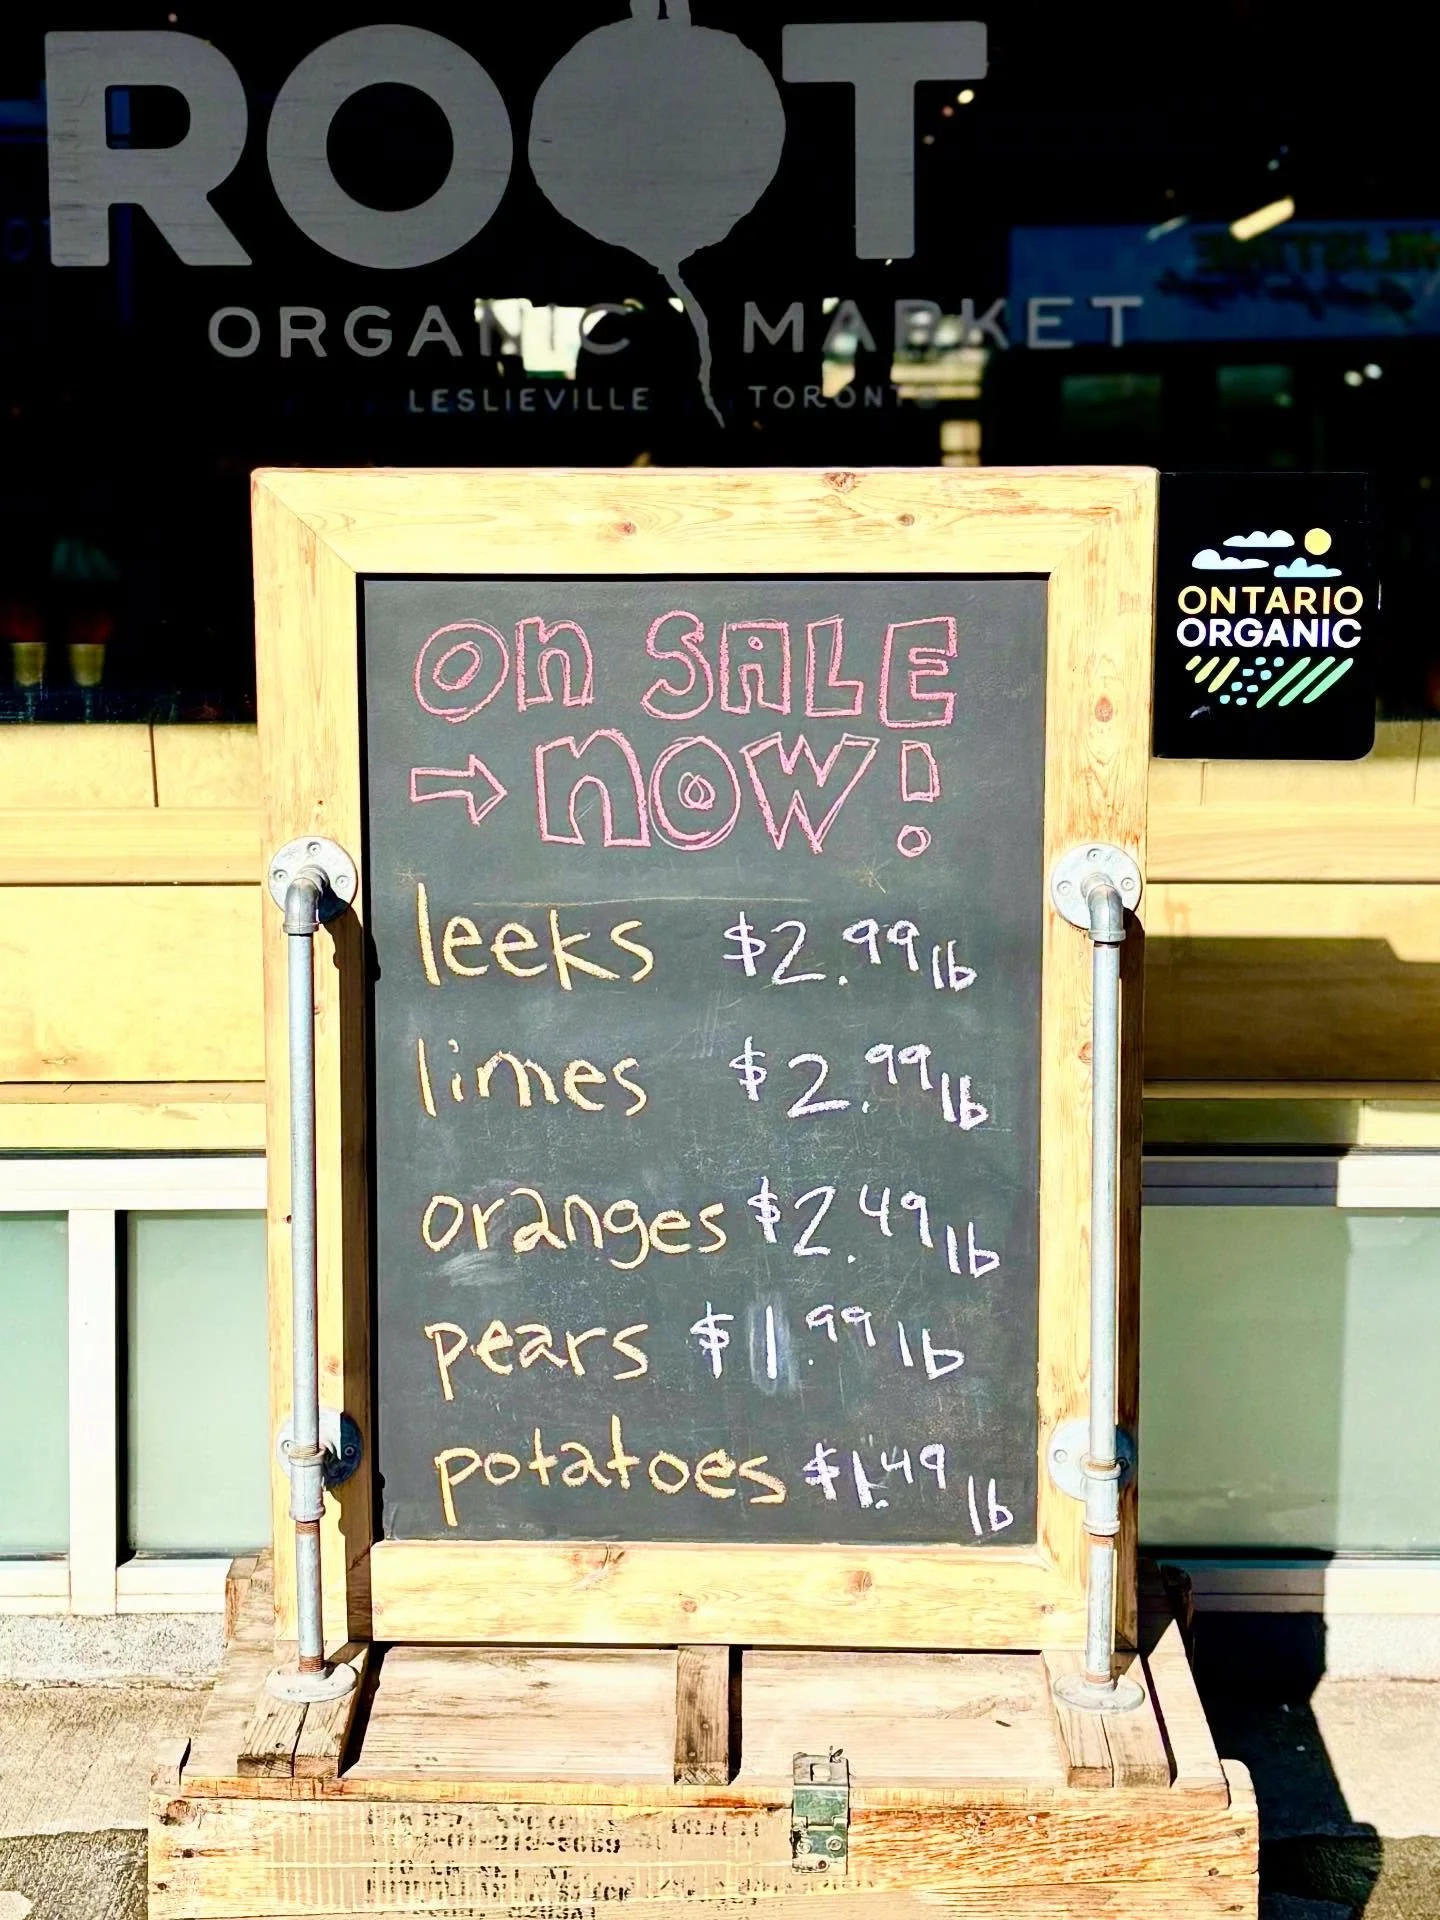 ROOT
ORGANIC MARKET
LESLIEVILLE TORONTO
ONTARIO
ORGANIC
On SALE
→ NOW!
leeks $2.99 lb
limes $2.99 lb
oranges $2.49 lb
pears $1.99 lb
potatoes $1.49 lb